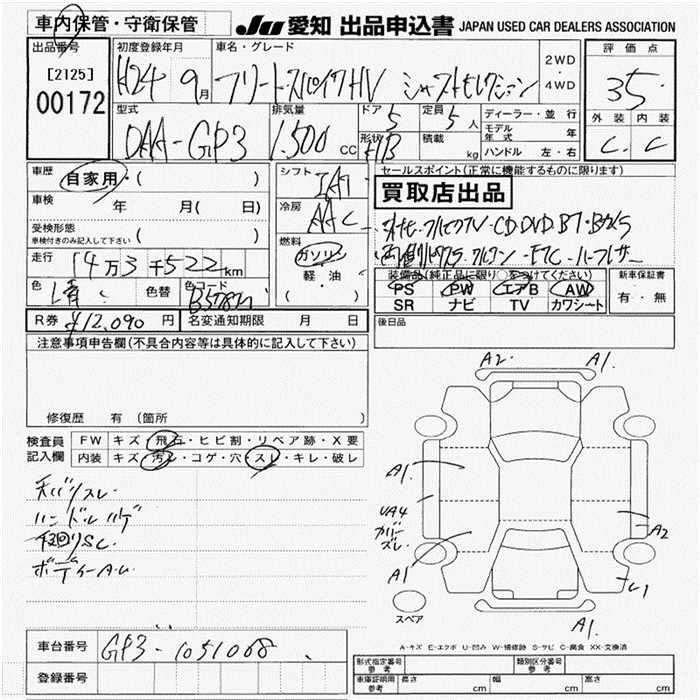 車内保管・守衛保管
JU 愛知 出品申込書 JAPAN USED CAR DEALERS ASSOCIATION
出品番号 初度登録年月 車名・グレード 2WD・4WD 評価点
[2125]
00172 H24 9月 フリードスパイクHV ジャストセレクション 35
型式 排気量 ドア 5 定員 5人 ディーラー・並行 外装 内装
DAA-GP3 1.500 CC 形状 積載 kg モデル年式 年 C C
ハンドル 左・右
車歴 自家用・( ) シフト IAT セールスポイント(正常に機能するものに限ります)
車検 年 月( 日) 冷房 AAC 買取店出品
受検形態 ( )
車検付きのみ記入して下さい
走行 14万3千522km 燃料 ガソリン
軽・油
( )
色 色替 色コード
装備品(純正品に限り○をつけてください) 新車保証書
PS PW エアB AW 有・無
SR ナビ TV カワシート
R券 ¥12,090円 名変通知期限 月 日 後日品
注意事項申告欄(不具合内容等は具体的に記入して下さい)
修復歴 有 (箇所 )
検査員記入欄 FW キズ・飛石・ヒビ割・リペア跡・X要
内装 キズ・汚レ・コゲ・穴・スレ・キレ・破レ
ハンドルハゲ
下回りSC
A2. A1.
A1
UA4
カバーズレ
A2
A1
スペア
A1.
A-キズ E-エクボ U-凹み W-補修跡 S-サビ C-腐食 XX-交換済
車台番号 GP3-1051068
登録番号
形式指定番号 参考 類別区分番号 参考
車庫証明用 参考 長さ cm 幅 cm 高さ cm